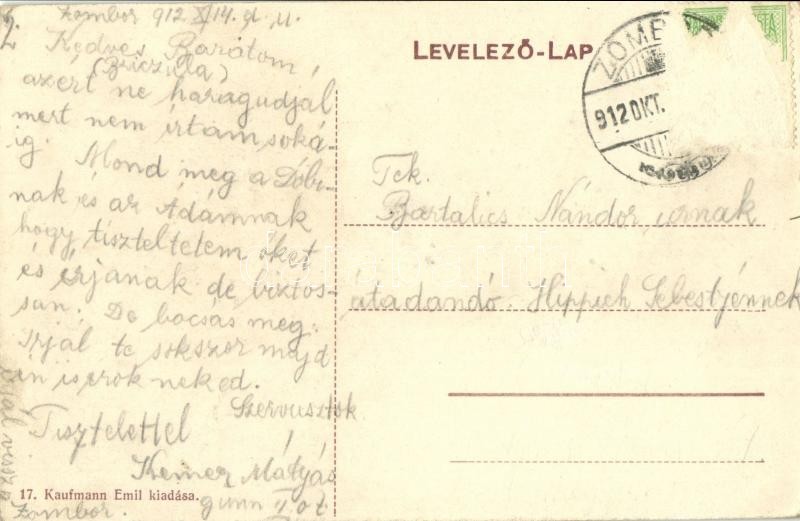 Zombor 912 X/14. d. u.
Kedves Barátom!
azért ne haragudjál
mert nem írtam soká-
ig. Mond meg a Dóbi-
nak és az Ádámnak
hogy tiszteltetem őket
és írjanak de biztos-
san. De bocsás meg.
Irjál te sokszor majd
én is irok neked.
Szervusztok
Tisztelettel
Kemer Mátyás
gimn II. o. t.
Zombor.
irjál vissza
17. Kaufmann Emil kiadása.
LEVELEZŐ-LAP
ZOMB
912 OKT.
Tek.
Bartalics Nándor urnak
átadandó Hippich Sebestjénnek